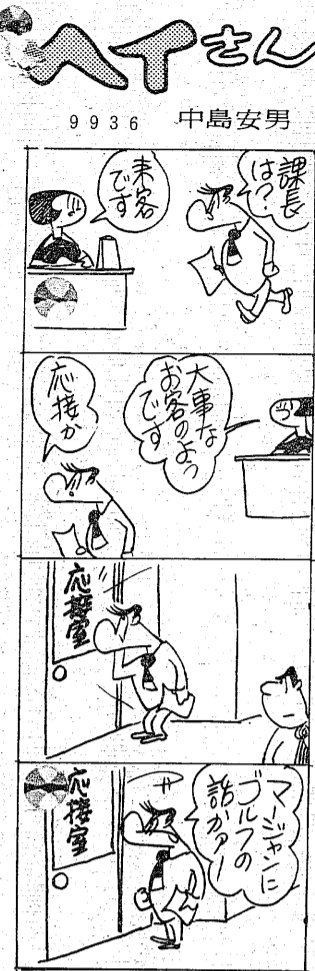 ヘイさん
9936 中島安男
課長
は?
来客
です
大事な
お客のよう
です
応接か
応接室
応接室
マージャンに
ゴルフの
話かァー